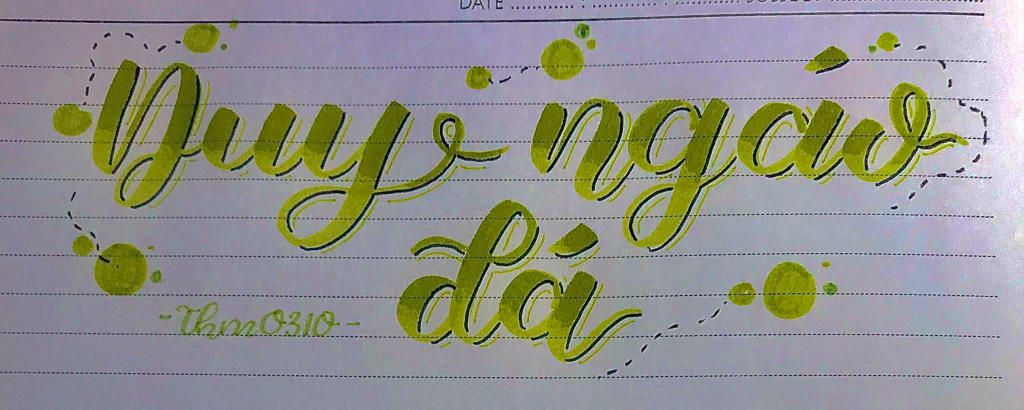 DATE ........... : ............ SUBJECT ........................
Duy ngáo
đá
-Thm0310-